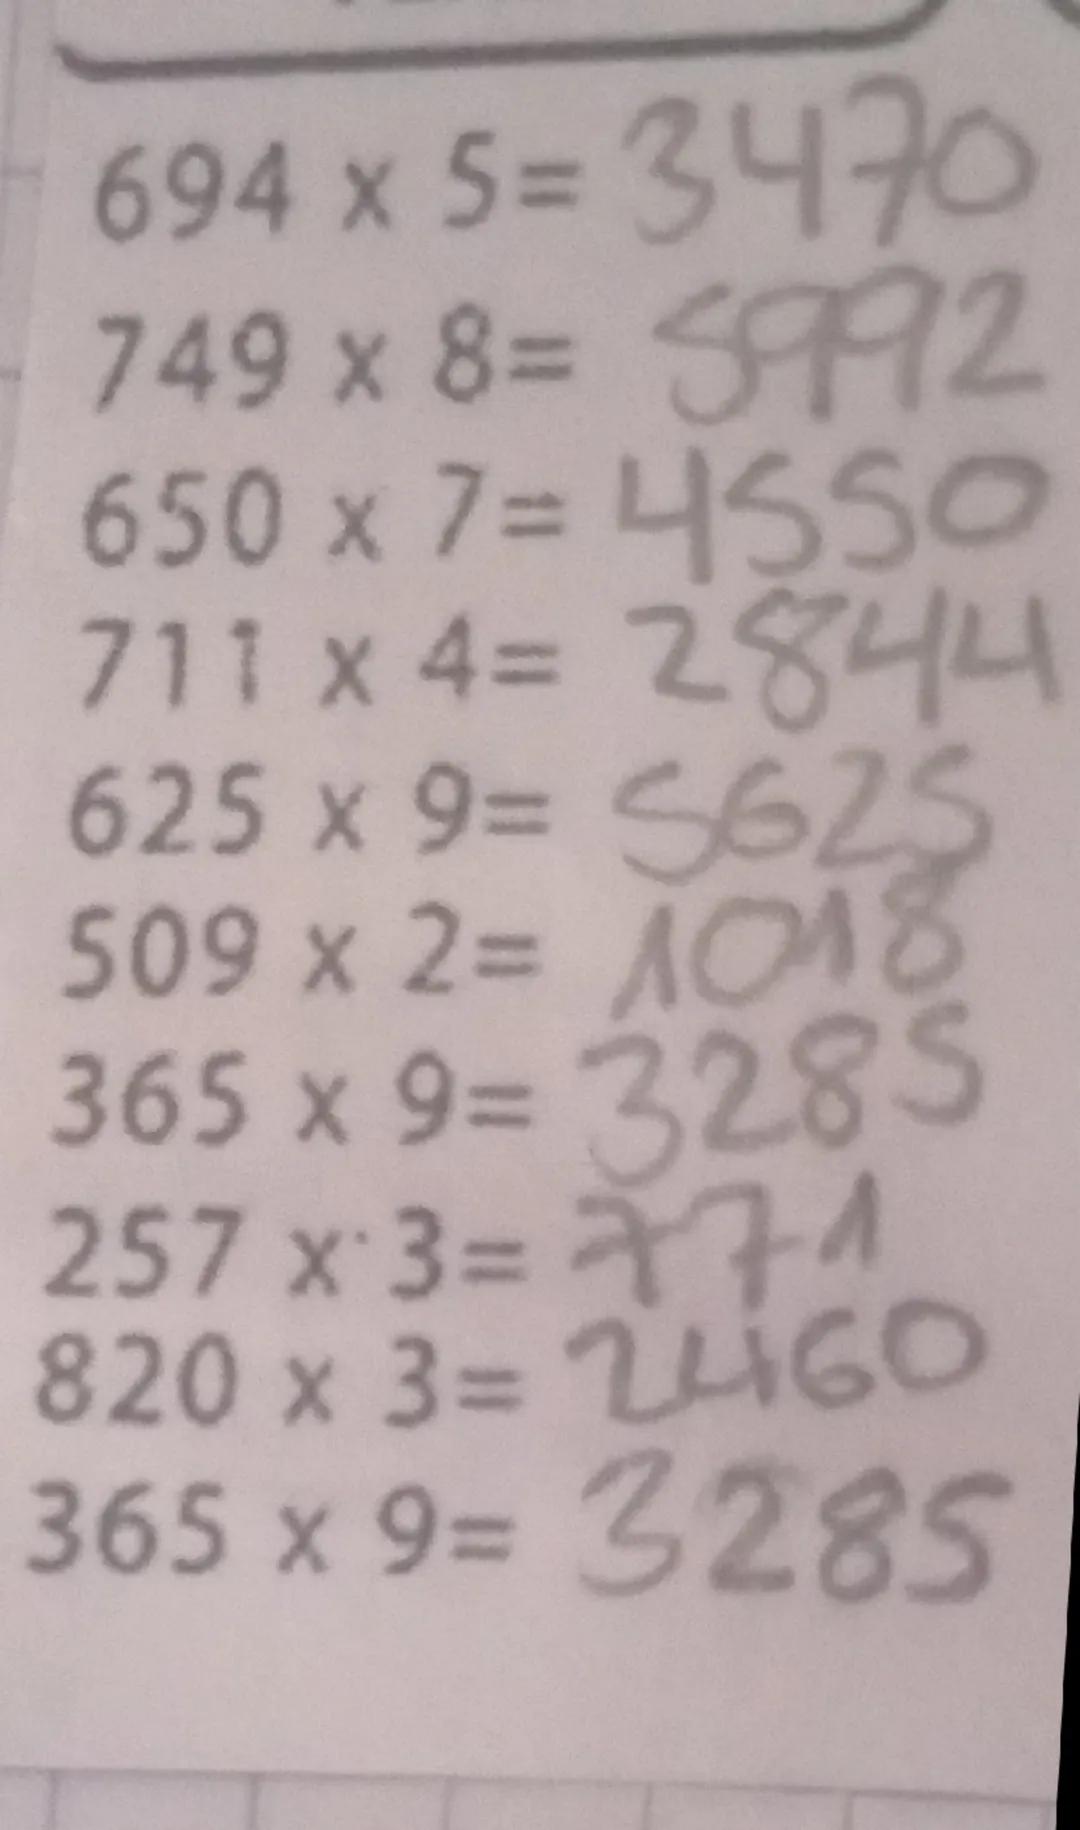 694 x 5= 3470
749 x 8= 5992
650 x 7= 4550
711 x 4= 2844
625 x 9= 5625
509 x 2= 1018
365 x 9= 3285
257 x 3= 771
820 x 3= 2460
365 x 9= 3285